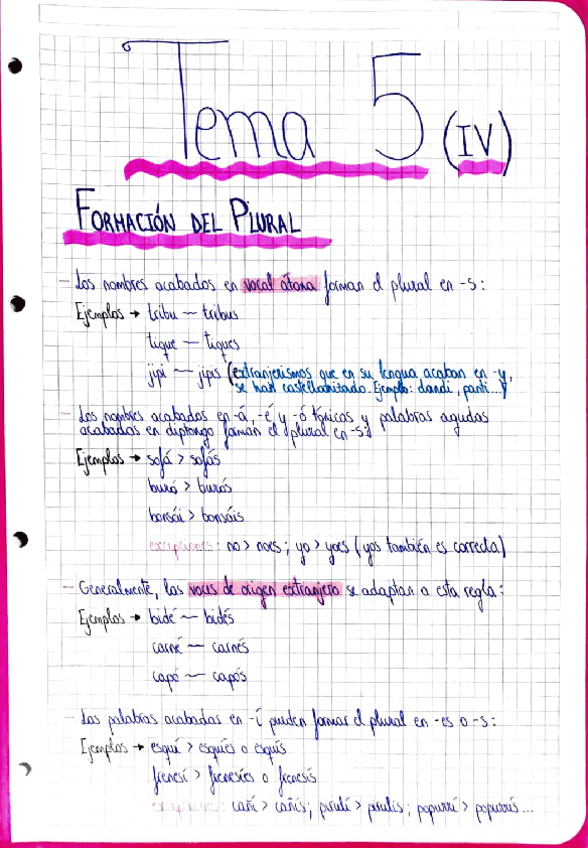 Tema 5 (IV)
FORMACIÓN DEL PLURAL
- Los nombres acabados en vocal átona forman el plural en -s:
Ejemplos → tribu — tribus
tique — tiques
jipi — jipis (extranjerismos que en su lengua acaban en -y,
se han castellanizado. Ejemplo: dandi, panti...)
- Los nombres acabados en -á, -é y -ó tónicas y palabras agudas
acabadas en diptongo forman el plural en -s:
Ejemplos → sofá > sofás
buró > burós
bonsái > bonsáis
excepciones: no > noes; yo > yoes (yos también es correcta)
- Generalmente, las voces de origen extranjero se adaptan a esta regla:
Ejemplos → bidé — bidés
carné — carnés
capó — capós
- Las palabras acabadas en -í pueden formar el plural en -es o -s:
Ejemplos → esquí > esquíes o esquís
frenesí > frenesíes o frenesís
excepciones: cañí > cañís; pirulí > pirulís; popurrí > popurrís...